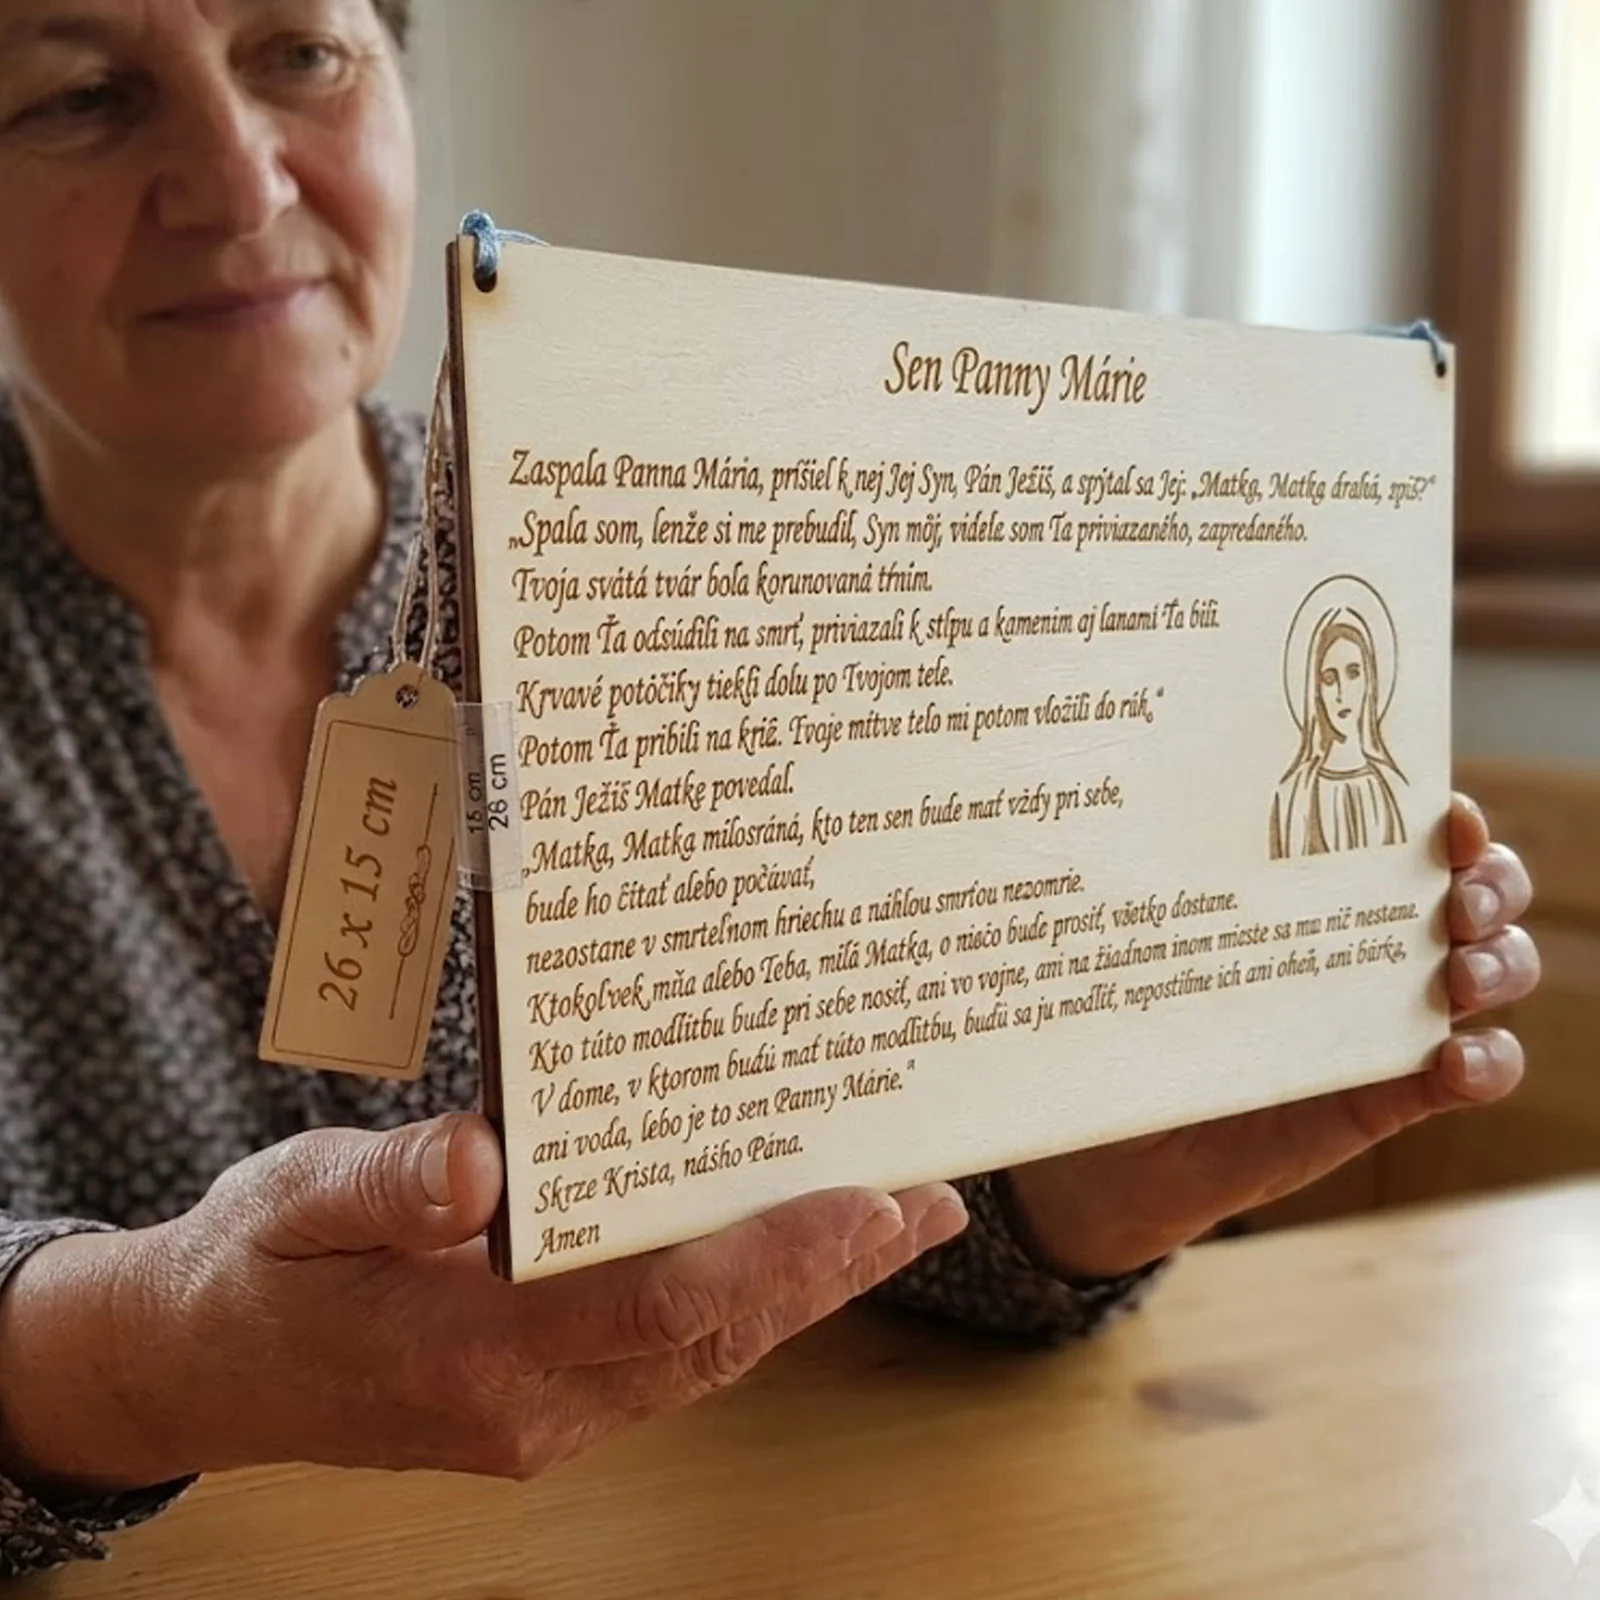 Sen Panny Márie
Zaspala Panna Mária, príšiel k nej Jej Syn, Pán Ježíš, a spýtal sa Jej: „Matka, Matka drahá, spíš?“
„Spala som, lenže si me prebudil, Syn môj, videle som Ťa priviazaného, zapredaného.
Tvoja svätá tvár bola korunovaná tŕním.
Potom Ťa odsúdili na smrť, priviazali k stĺpu a kamenim aj lanami Ťa bili.
Krvavé potôčiky tiekli dolu po Tvojom tele.
Potom Ťa pribili na kríž. Tvoje mŕtve telo mi potom vložili do rúk.“
Pán Ježíš Matke povedal.
„Matka, Matka milosráná, kto ten sen bude mať vždy pri sebe,
bude ho čítať alebo počúvať,
nezostane v smrteľnom hriechu a náhlou smrťou nezomrie.
Ktokoľvek mňa alebo Teba, milá Matka, o niečo bude prosiť, všetko dostane.
Kto túto modlitbu bude pri sebe nosiť, ani vo vojne, ani na žiadnom inom mieste sa mu nič nestane.
V dome, v ktorom budú mať túto modlitbu, budú sa ju modliť, nepostihne ich ani oheň, ani búrka,
ani voda, lebo je to sen Panny Márie.“
Skrze Krista, nášho Pána.
Amen
26 x 15 cm
15 cm
26 cm